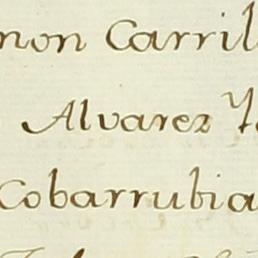 mon Carril
Alvarez
Cobarrubia